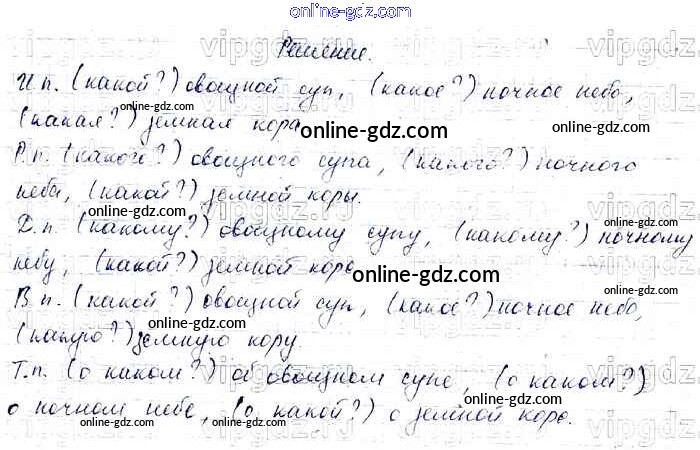 online-gdz.com
Решение.
И п. (какой?) овощной суп, (какое?) ночное небо,
online-gdz.com
online-gdz.com
(какая?) земная кора
online-gdz.com
Р.п. (какого?) овощного супа, (какого?) ночного
неба, (какой?) земной коры.
online-gdz.com
online-gdz.com
Д.п. (какому?) овощному супу, (какому?) ночному
небу, (какой?) земной коре
online-gdz.com
online-gdz.com
В п. (какой?) овощной суп, (какое?) ночное небо,
online-gdz.com
online-gdz.com
(какую?) земную кору.
Т.п. (о каком?) об овощном супе, (о каком?)
online-gdz.com
online-gdz.com
о ночном небе, (о какой?) о земной коре.
online-gdz.com